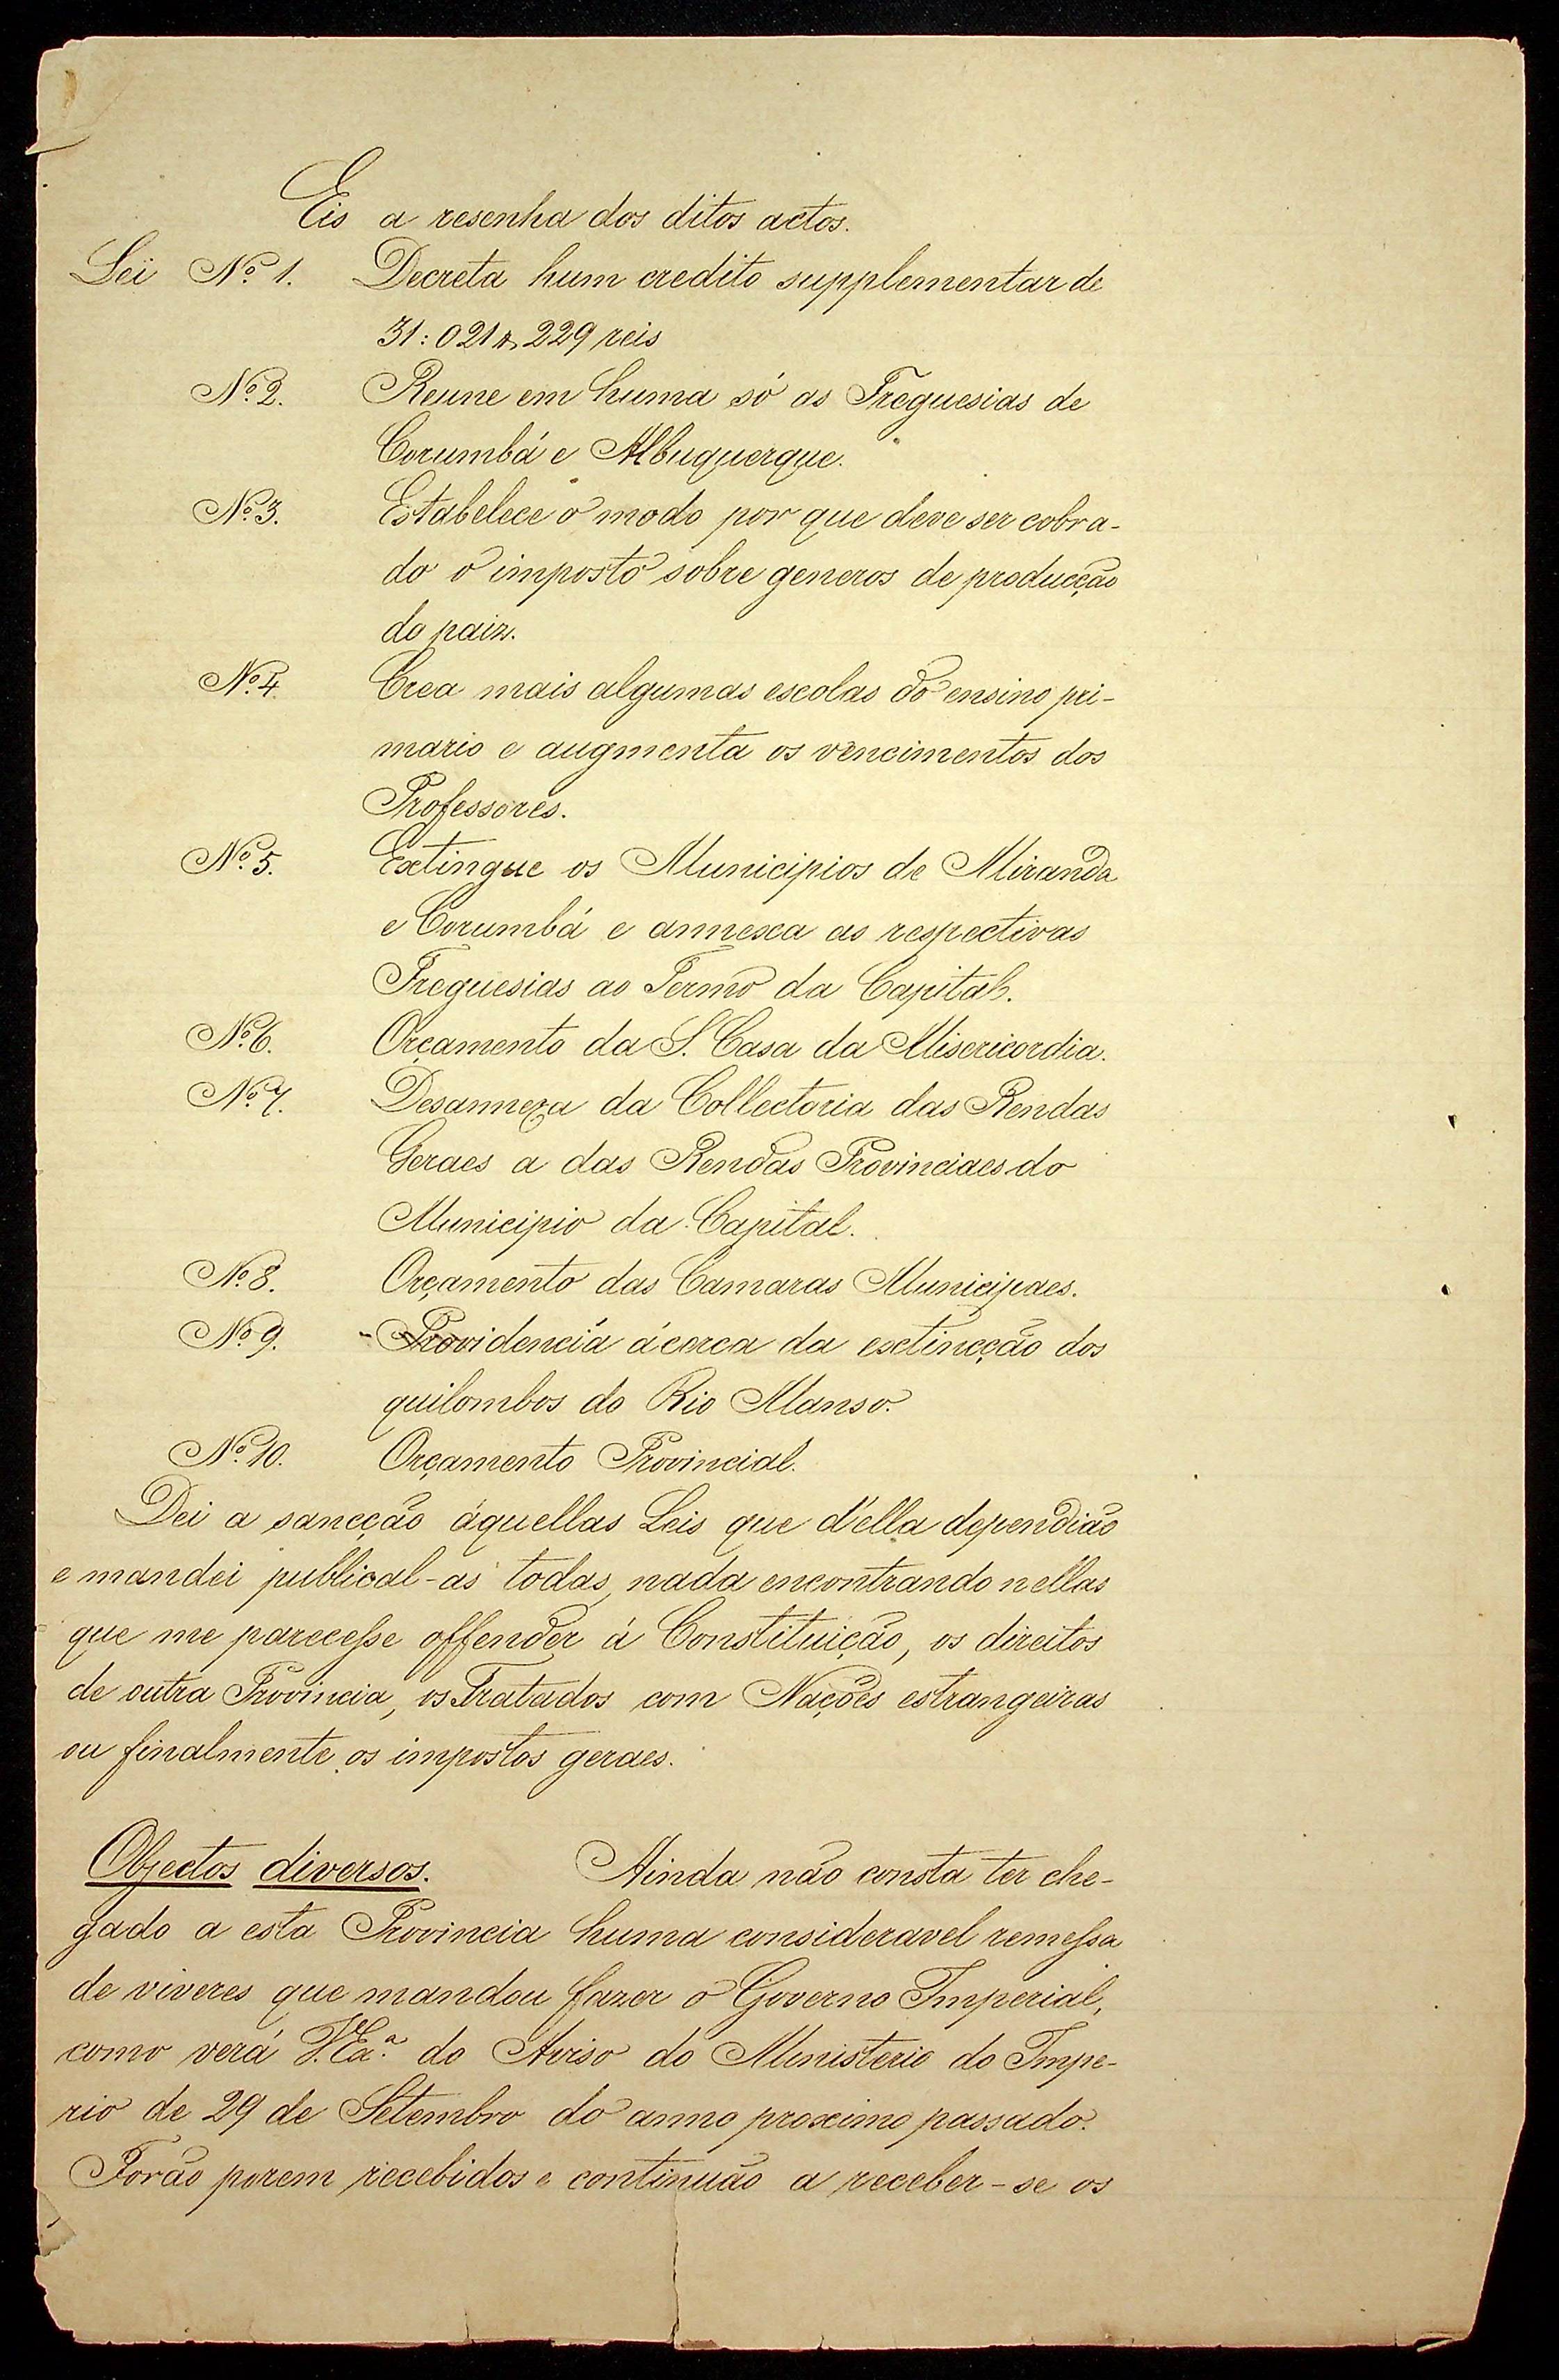 Eis a resenha dos ditos actos.
Lei Nº 1. Decreta hum credito supplementar de
31:021$229 reis
Nº 2. Reune em huma só as Freguesias de
Corumbá e Albuquerque.
Nº 3. Estabelece o modo por que deve ser cobra-
do o imposto sobre generos de producção
do paiz.
Nº 4 Crea mais algumas escolas do ensino pri-
mario e augmenta os vencimentos dos
Professores.
Nº 5. Extingue os Municipios de Miranda
e Corumbá e annexa as respectivas
Freguesias ao Termo da Capital.
Nº 6. Orçamento da S. Casa da Misericordia.
Nº 7. Desannexa da Collectoria das Rendas
Geraes a das Rendas Provinciaes do
Municipio da Capital.
Nº 8. Orçamento das Camaras Municipaes.
Nº 9. Providencia ácerca da extincção dos
quilombos do Rio Manso.
Nº 10. Orçamento Provincial.
Dei a sancção áquellas Leis que d'ella dependião
e mandei publical-as todas, nada encontrando nellas
que me parecesse offender á Constituição, os direitos
de outra Provincia, os Tratados com Nações estrangeiras
ou finalmente os impostos geraes.
Objectos diversos. Ainda não consta ter che-
gado a esta Provincia huma consideravel remessa
de viveres que mandou fazer o Governo Imperial,
como verá V. Exª. do Aviso do Ministerio do Impe-
rio de 29 de Setembro do anno proximo passado.
Forão porem recebidos e continuão a receber-se os